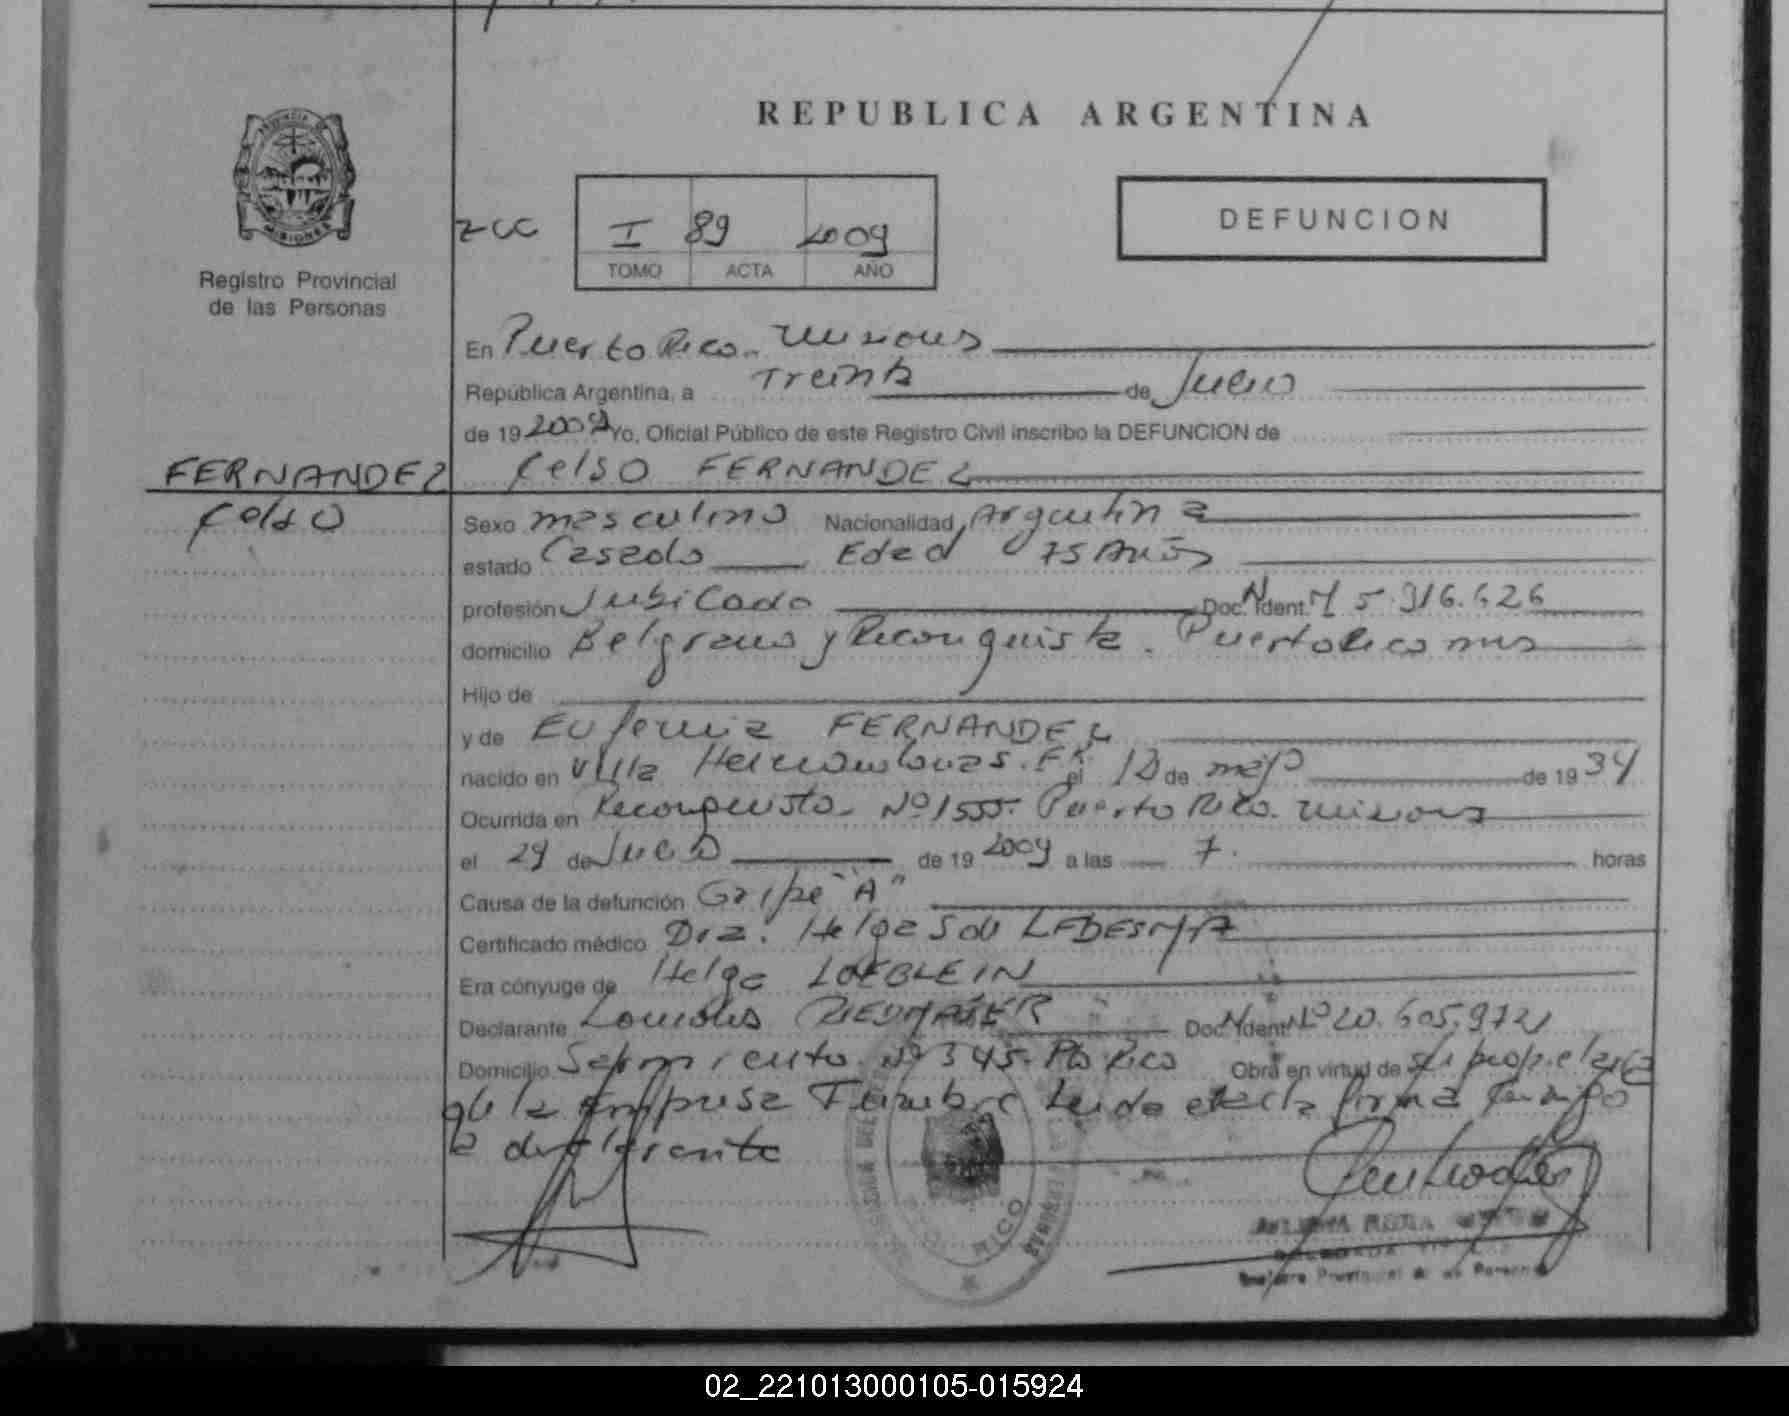 REPUBLICA ARGENTINA
PROVINCIA DE
MISIONES
Registro Provincial
de las Personas
DEFUNCION
I 89 2009
TOMO ACTA AÑO
En Puerto Rico. Misiones
República Argentina, a Treinta de Julio
de 19 2009 Yo, Oficial Público de este Registro Civil inscribo la DEFUNCION de
FERNANDEZ Celso FERNANDEZ
Celso
Sexo masculino Nacionalidad Argentina
estado Casado Edad 75 Años
profesión Jubilado Doc. N Ident. M 5.916.626
domicilio Belgrano y Reconquista. Puerto Rico mns
Hijo de
y de Eufemia FERNANDEZ
nacido en Villa el de mayo de 19 34
Ocurrida en Reconquista Nº 1555. Puerto Rico. Misiones
el 29 de Julio de 19 2009 a las 7. horas
Causa de la defunción Gripe "A"
Certificado médico Dra. Helga Sou LEDESMA
Era cónyuge de Helga LOEBLEIN
Declarante Lourdes Doc. N Ident. Nº 20.605.972
Domicilio Sarmiento Nº 345. Pto Rico Obra en virtud de
de la Empresa Funebre Leida el acta firma conmigo
la declarante
RICO
Registro Provincial de las Personas
02_221013000105-015924